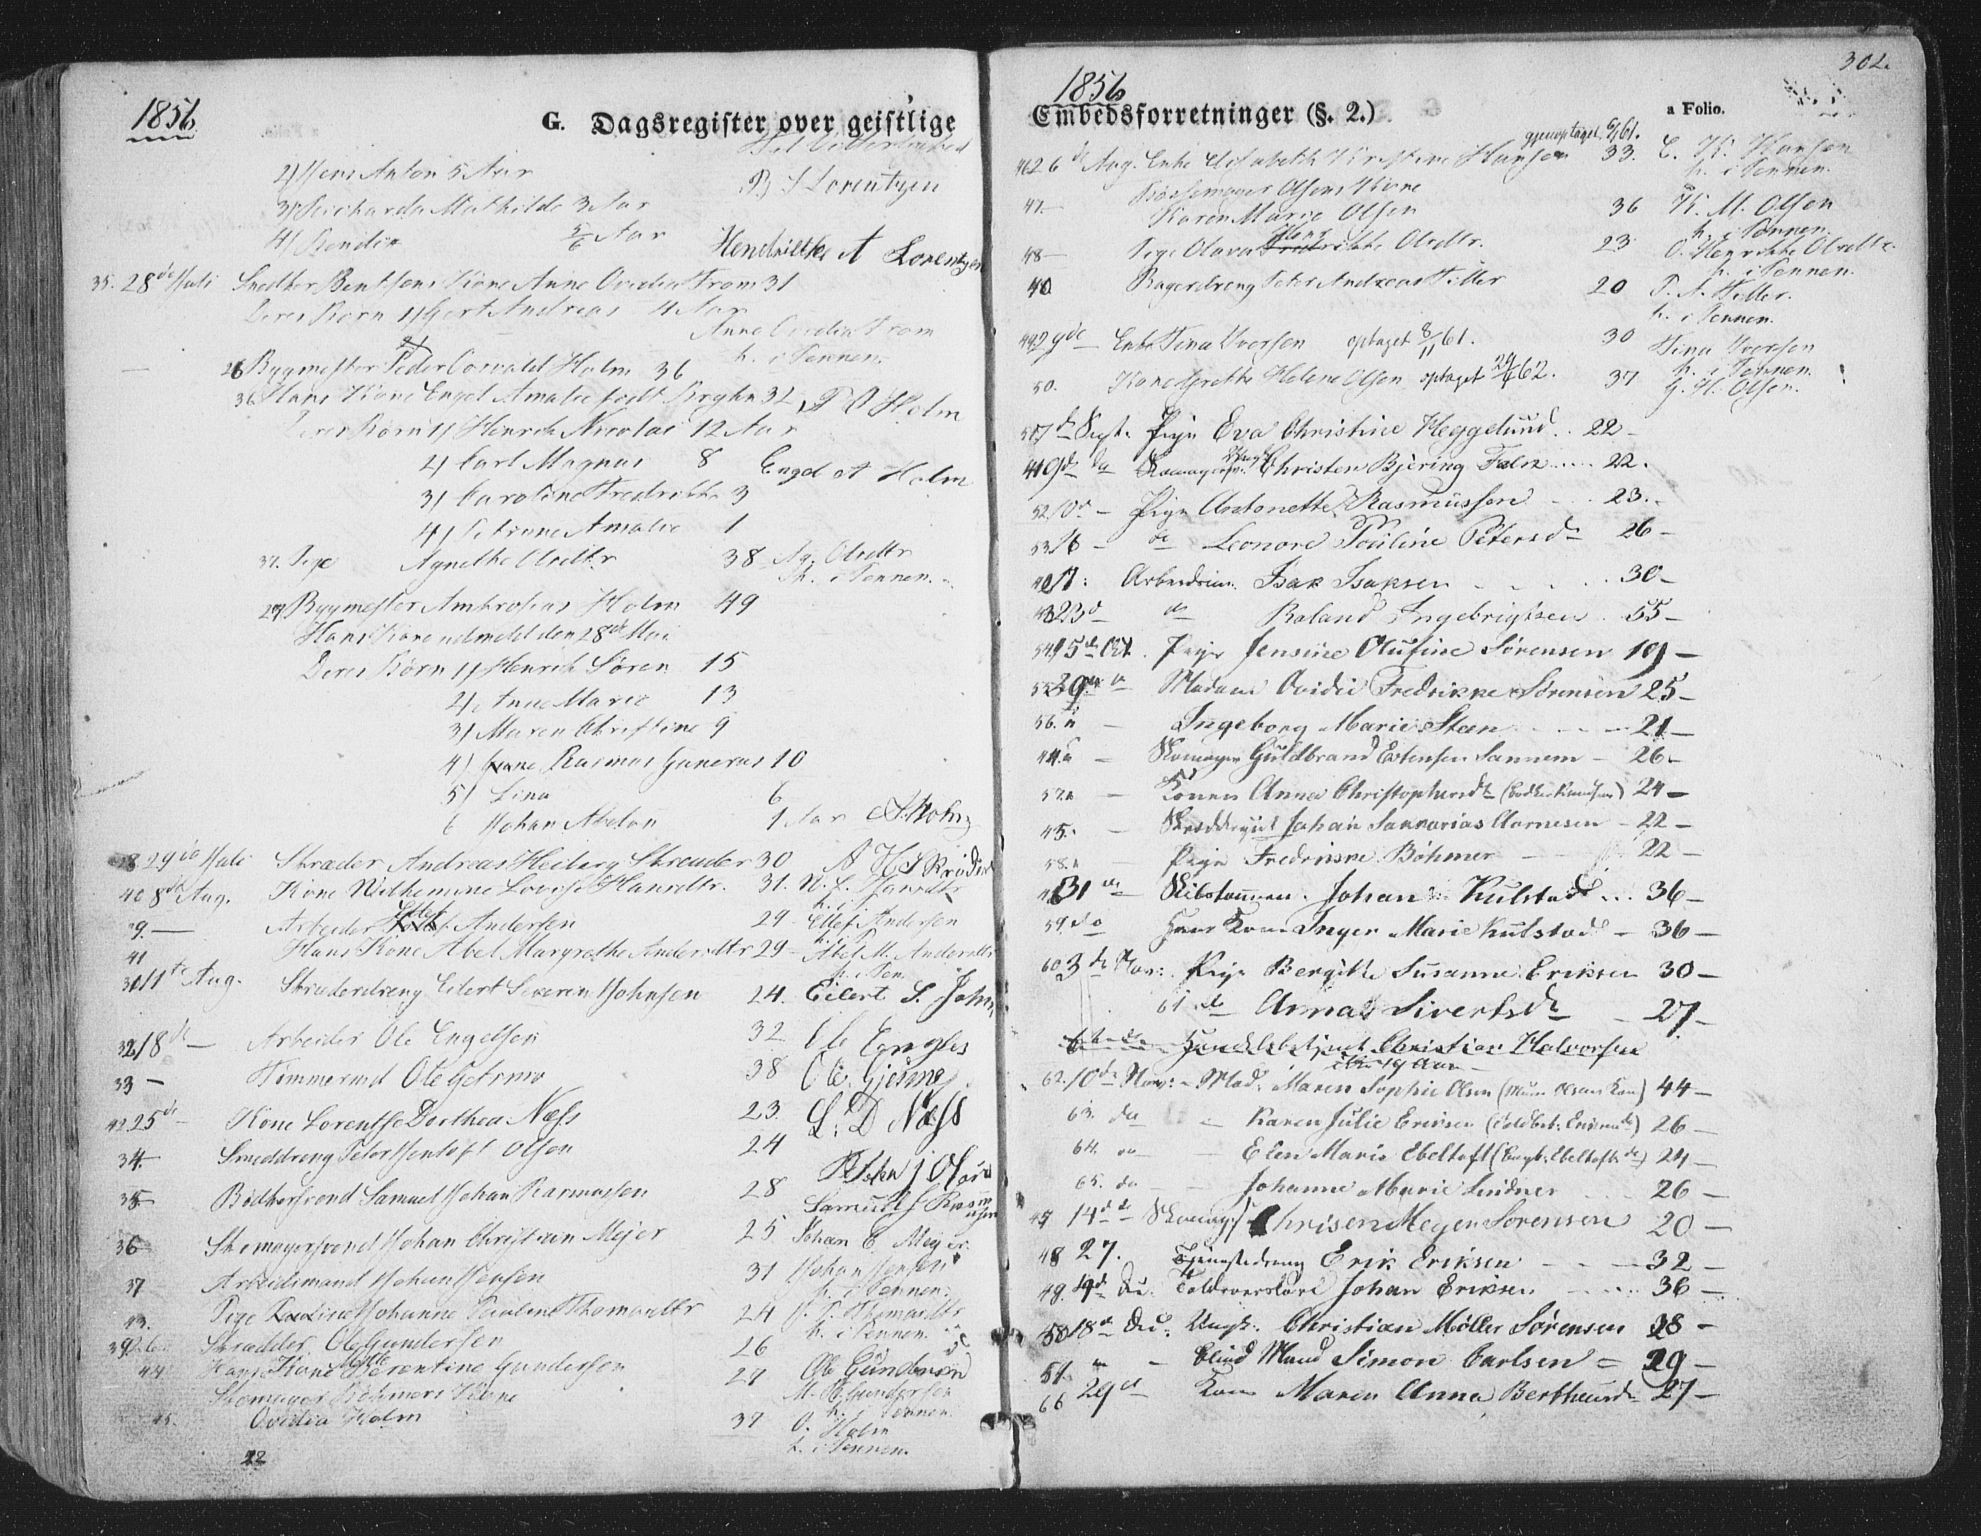 1856
G. Dagsregister over geistlige
2) Jens Anton 5 Aar
3) Richarda Mathilde 3 Aar
4) Bendix 5/6 Aar
B J Lorentzen
Hendrikke A Lorentzen
35. 28de Juli Snedker Bentsons Kone Anne Ovidia From 31
Deres Børn 1) Gert Andreas 4 Aar
Anne Ovidia From
h. i Pennen.
26 Bygmester Peder Osvald Holm 36
36 Hans Kone Engel Amalie født Bergh 32 P O Holm
Deres Børn 1) Henrik Nicolai 12 Aar
2) Carl Magnus 8 Engel A Holm
3) Caroline Fredrikke 3
4) Petrine Amalie 1
37. Pige Agnethe Olsdtr 38 Ag. Olsdtr
h. i Pennen.
27 Bygmester Ambrosius Holm 49
Hans Kone udmeldt den 28de Mai
Deres Børn 1) Henrik Søren 15
2) Anne Marie 13
3) Maren Christine 9
4) Rasmus Gunerus 10
5) Lina 6
6 Johan Abelon 1 Aar A. Holm
28 29de Juli Skræder Andreas Heiberg Skrøuder 30
40 8de Aug. Kone Wilhemine Lovise Hansdtr. 31. W. L. Hansdtr
h. i P.
29. — Arbeider Ellef Andersen 29 — Ellef Andersen
41 Hans Kone Abel Margrethe Andersdtr 29 — Abel M. Andersdtr
h. i Pen
30 11te Aug. Skræderdreng Eilert Severin Johnsen 24. Eilert S. Johns
32 18de — Arbeider Ole Engelsen 32 Ole Engels
33 — Tømmermd Ole Gjesmo 38 Ole. Gjesmo
42 25de — Kone Lorentse Dorthea Næss 23. L: D Næss
34. Smeddreng Peter Jentoft Olsen 24
35 Bødkersvend Samuel Johan Rasmussen 28 Samuel J Rasmussen
36 Skomagersvend Johan Christian Mejer 25 Johan C Mejer
37 Arbeidsmand Johan Jensen 31 Johan Jensen
h. i Pennen.
43. Pige Johanne Pauline Thomasdtr 24 J. P. Thomasdtr
h. i Pennen.
39 26 Skrædder Ole Gundersen 26 Ole Gundersen
44. Hans Kone Mette Berentine Gundersen 29 M. B. Gundersen
h. i Pennen
Skomager Bøhmers Kone
45. Ovidia Holm 37 O. Holm
h. i Pennen.
22
1856
302.
Embedsforretninger (§. 2.)
a Folio.
gjenoptaget 6/61.
46 26de Aug. Enke Elisabeth Kristine Hansen 33. E. K. Hansen
h. i Pennen.
47 — Bøssemager Olsens Kone
Karen Marie Olsen 36 K. M. Olsen
h. i Pennen.
48 — Pige Olava Henrikke Olsdtr. 23 O. Henrikke Olsdtr.
h. i Pennen.
40 Bagerdreng Peter Andreas Tiller 20 P. A. Tiller.
h. i Pennen.
49 29de — Enke Tina Iversen optaget 8/11 61. 30 Tina Iversen
h. i Pennen.
50. Kone Grethe Helene Olsen optaget 29/6 62. 37 G. H. Olsen.
51 7de Sept. Pige Eva Christine Heggelund .. 22 —
41 9de do Skomagersv. Christen Bjering Falk .... 22.
52 10de — Pige Antonette Rasmussen — 23.
53 16 — do Leonore Pauline Petersdr 26 —
42 17: Arbeidsm. Isak Isaksen — 30 —
43 23de do Roland Ingebrigtsen . 55 —
54 15de Oct. Pige Jensine Olufine Sørensen 19 —
55 29de Madam Ovidie Fredrikke Sørensen 25 —
56. " — Ingeborg Marie Steen — 21 —
44. " — Skomager Guldbrand Estensen Sannem — 26 —
57. " — Konen Anna Christophersdr 24 —
45. — Skræddersv. Johan Sakarias Aarnesen — 22 —
58. " Pige Fredrikke Bøhmer — 22 —
46 31te — Johan Kulstad ... 36 —
59. do Hans Kone Inger Marie Kulstad — 36 —
60 3de Nov: Pige Bergitte Susanna Eriksen 30 —
61 do Anna Sivertsdr — 27 —
Handelsbetjent Christian Halvorsen
19 Aar
62. 10de Nov: — Mad: Maren Sophie Olsen 44 —
63. do — Karen Julie Eriksen 26 —
64. do Elen Marie Ebeltoft 24 —
65. do — Johanne Marie Lindner 26 —
47 14de Skomags Chrisen Meyer Sørensen 20 —
48 27. Tjenestedreng Erik Eriksen — 32 —
49. 4de De. Johan Eriksen .... 36 —
50 18de Dec: Ungk. Christian Møller Sørensen 18 —
51. " — blind Mand Simon Carlsen — 29 —
66 29de Kone Maren Anna Berthausdr 27 —